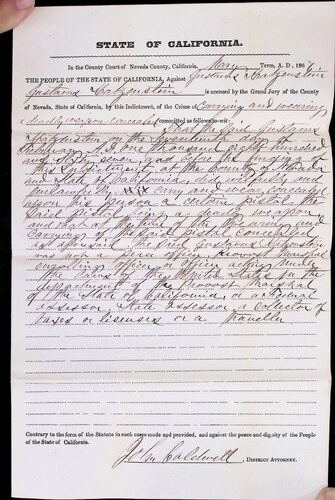 STATE OF CALIFORNIA.
In the County Court of Nevada County, California, May Term, A. D., 1867
THE PEOPLE OF THE STATE OF CALIFORNIA, Against Gustavus
Gustavus is accused by the Grand Jury of the County
of Nevada, State of California, by this Indictment, of the Crime of Carrying and wearing
a deadly weapon concealed committed as follows to-wit:
That the said Gustavus
on the day
A.D. one thousand eight hundred
and Sixty seven and before the finding of
this Indictment, at the County of Nevada
and State of California, did
carry and wear concealed
upon his person a certain pistol, the
said pistol being a deadly weapon
and that at the time of the wearing and
carrying of the said pistol concealed
as aforesaid the said Gustavus
was not a Peace officer, Provost Marshal
enrolling officer, or officer acting under
the laws of the United States in the
department of the Provost Marshal
of the State of California or a Federal
assessor, State assessor, or collector of
taxes or licenses or a traveller
Contrary to the form of the Statute in such cases made and provided, and against the peace and dignity of the People
of the State of California.
John Caldwell, DISTRICT ATTORNEY.